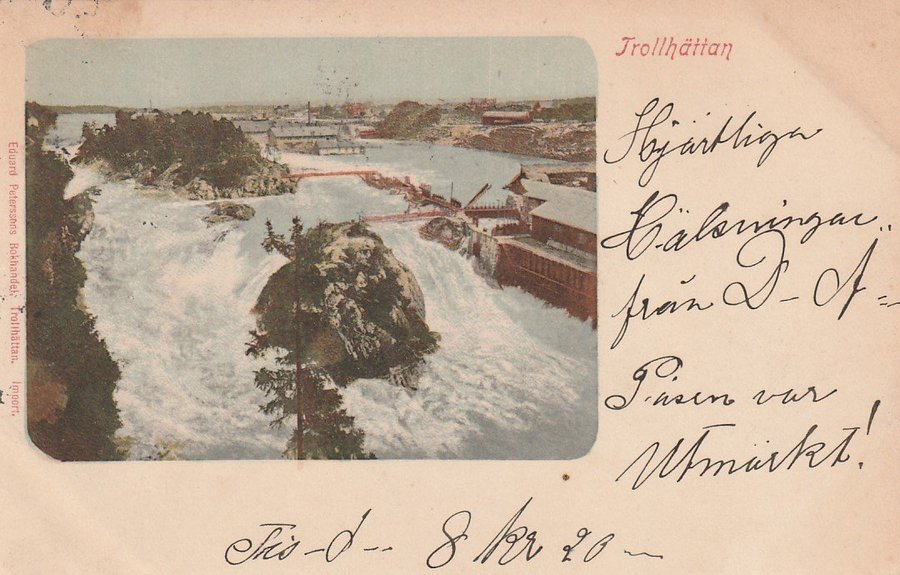 Trollhättan
Hjärtliga
Hälsningar
från D - A -
Påsen var
Utmärkt!
8 kr 20 —
Eduard Peterssons Bokhandel, Trollhättan. Import.